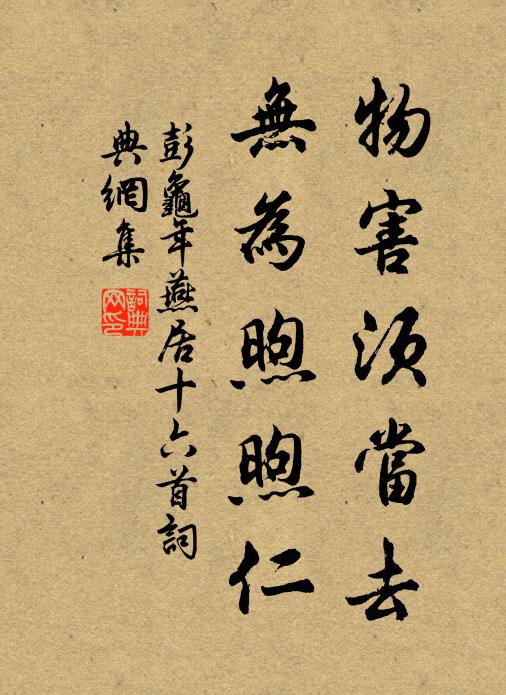 物害須當去
無為煦煦仁
彭龜年燕居十六首詞
典網集
詞典
网印